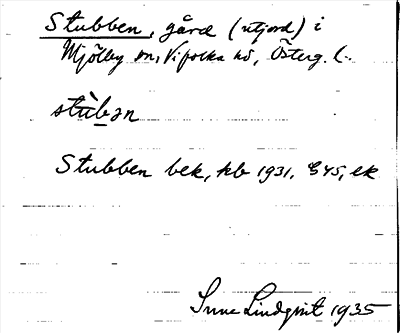 Stubben, gård (utjord) i
Mjölby sn, Vifolka hd, Österg. l.
stùbən
Stubben bek, kb 1931. G45, ek
Sune Lindqvist 1935